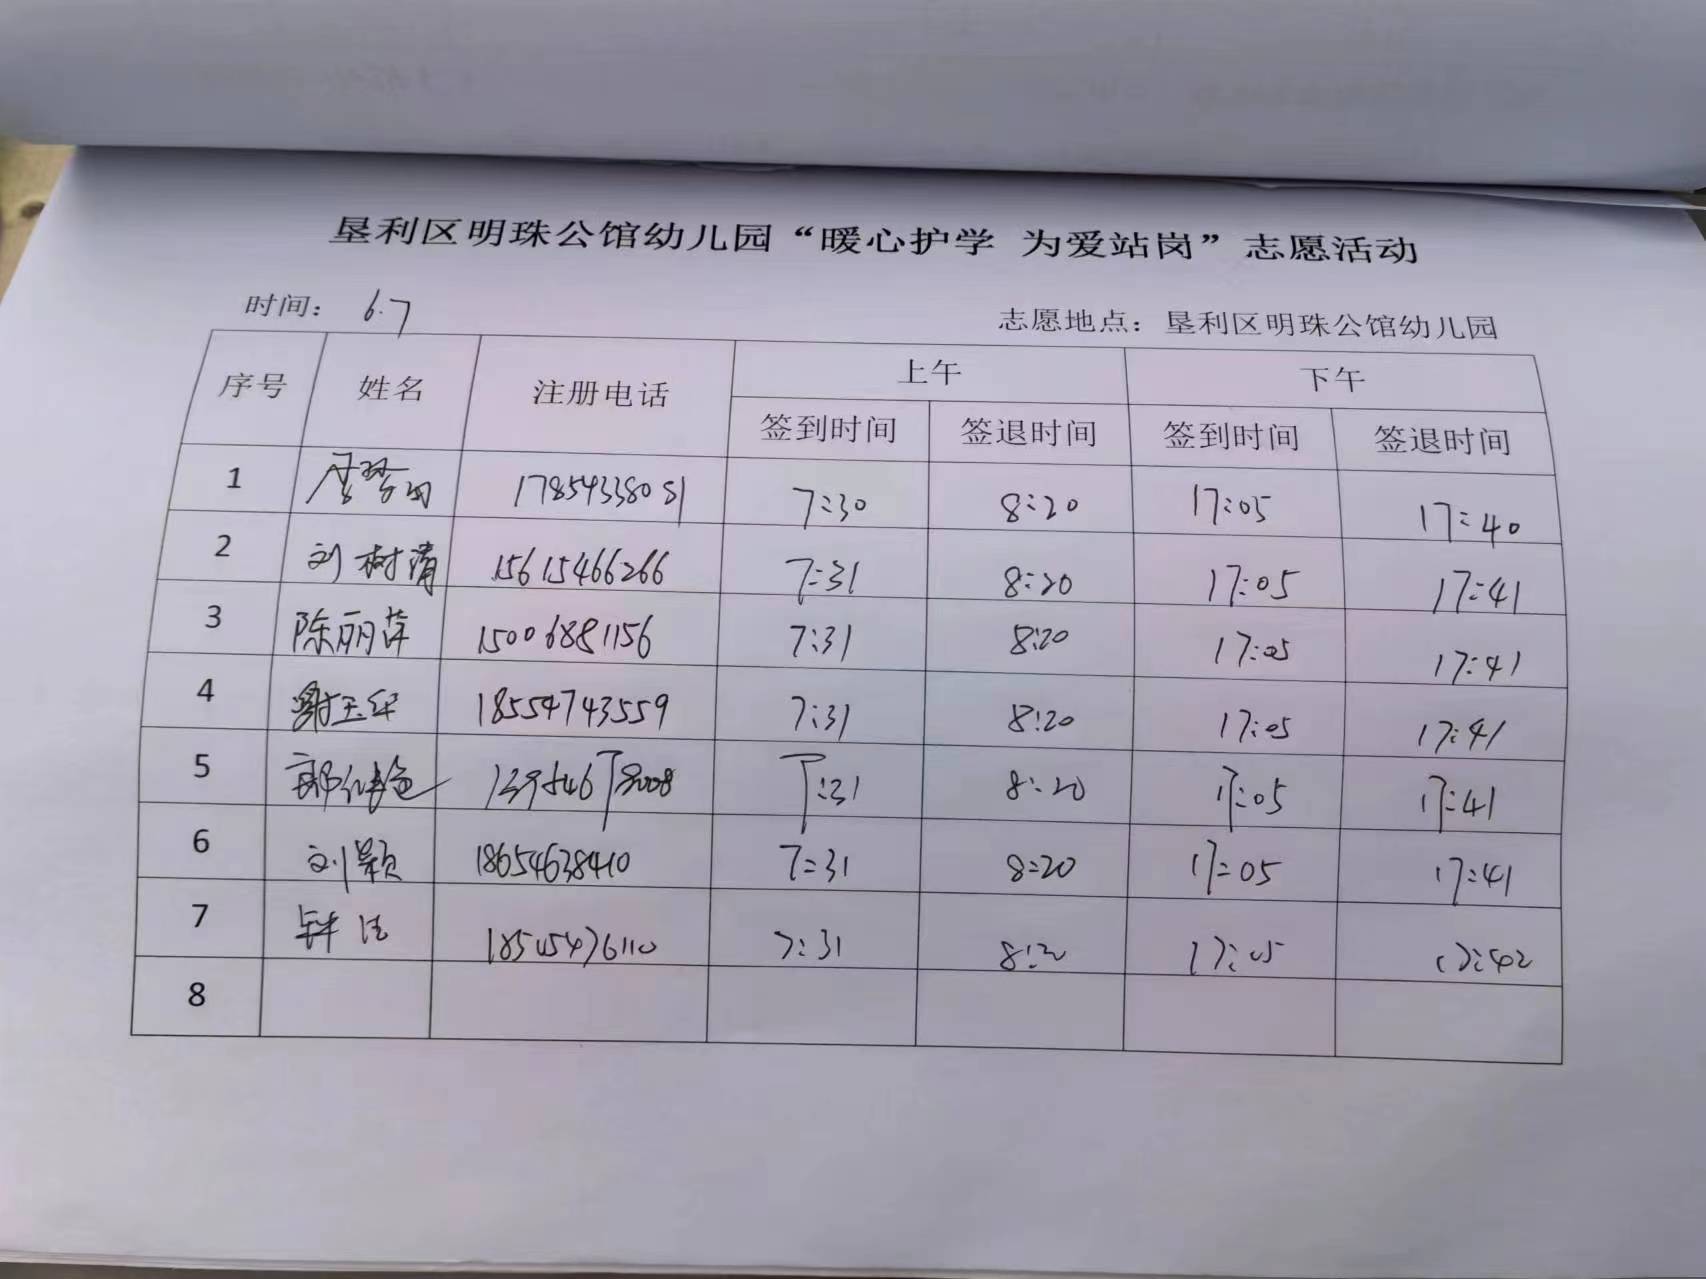 垦利区明珠公馆幼儿园“暖心护学 为爱站岗”志愿活动
时间： 6.7 志愿地点：垦利区明珠公馆幼儿园
序号 姓名 注册电话 上午 下午
签到时间 签退时间 签到时间 签退时间
1 17854338051 7:30 8:20 17:05 17:40
2 刘树清 15615466266 7:31 8:20 17:05 17:41
3 陈丽萍 15006881156 7:31 8:20 17:05 17:41
4 谢玉华 18554743559 7:31 8:20 17:05 17:41
5 13954678008 7:31 8:20 17:05 17:41
6 刘颖 18654638410 7:31 8:20 17:05 17:41
7 7:31 8:20 17:05 17:42
8